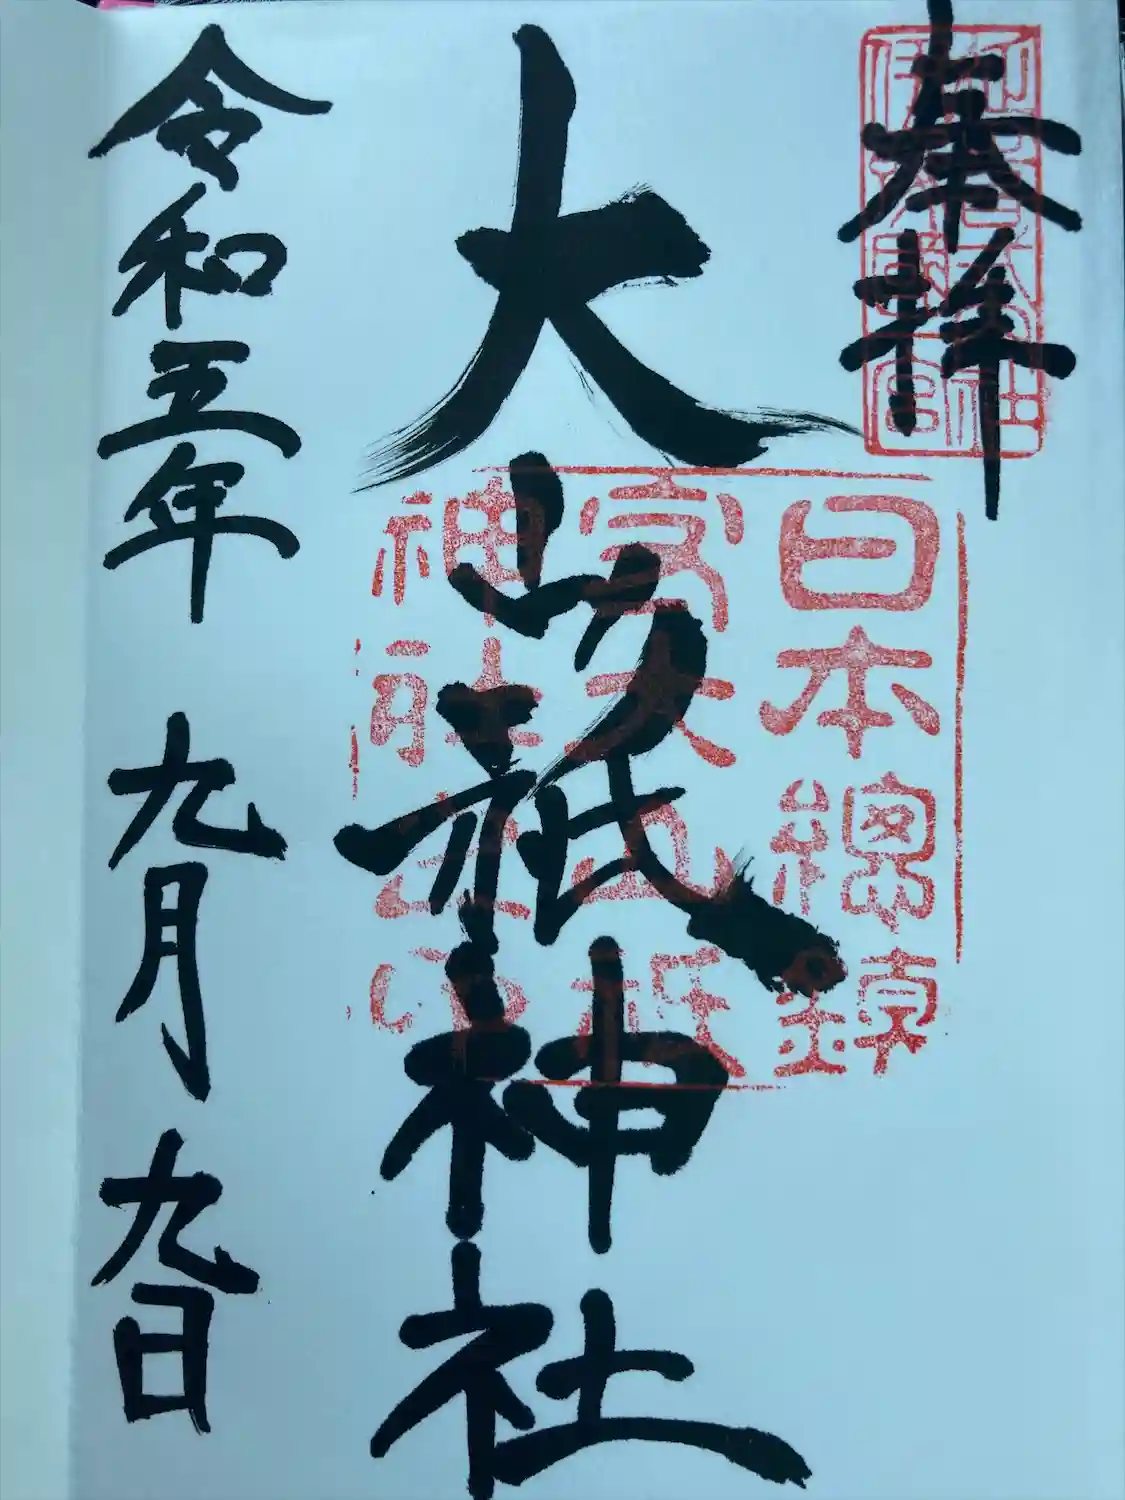 奉拝
大山祇神社
令和五年 九月 九日
日本總鎮
守大山祇
神社之印